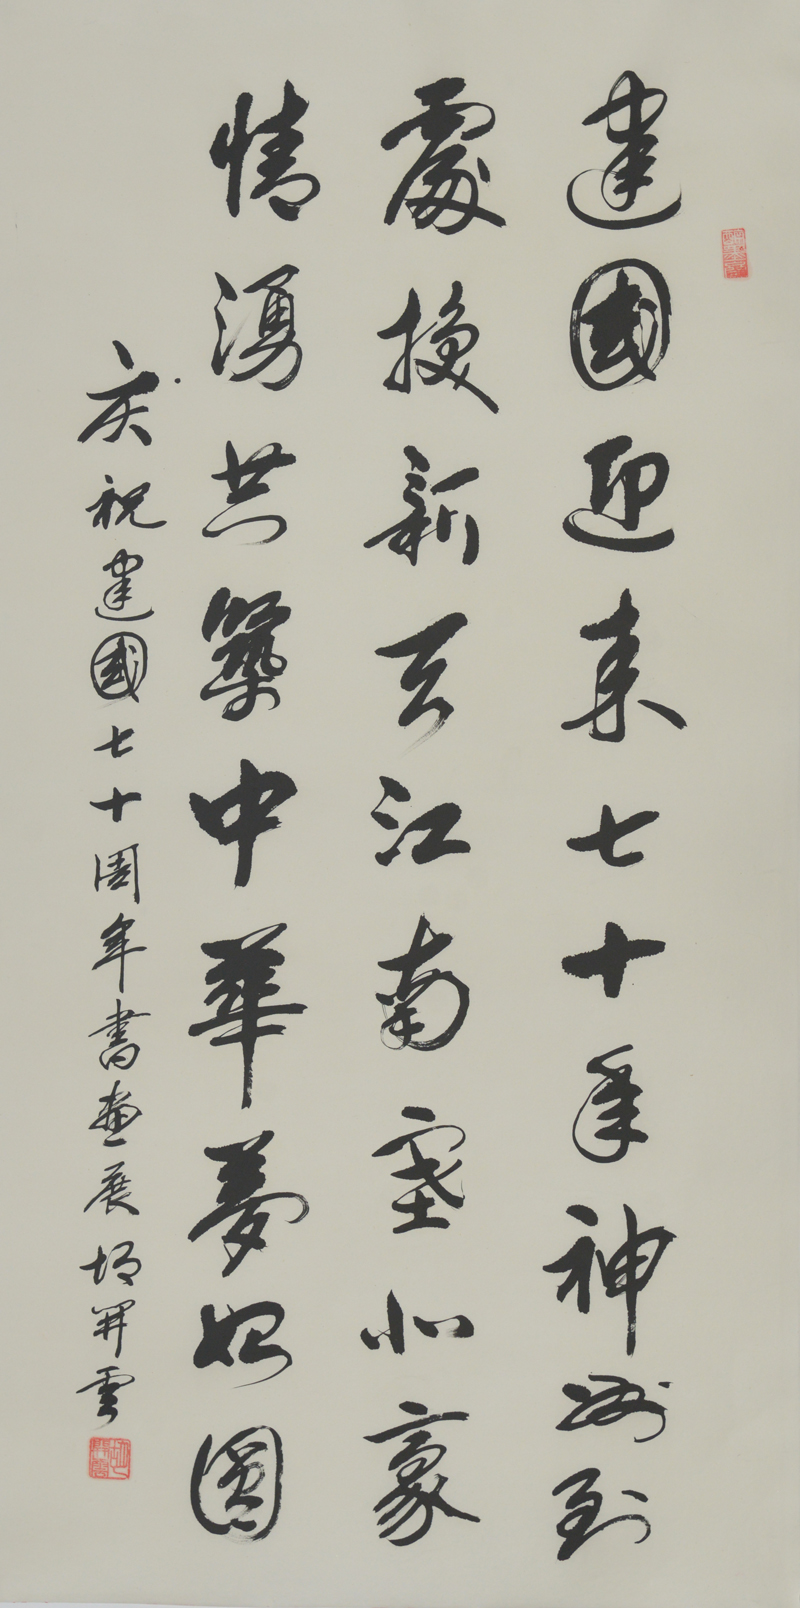 建國迎来七十年神州到
處換新天江南塞北豪
情湧共築中華夢始圆
庆祝建國七十周年書畫展
開雲